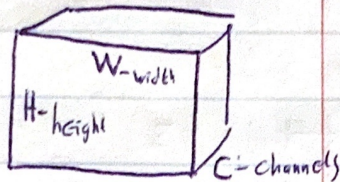 W-width
H-height
C-channels